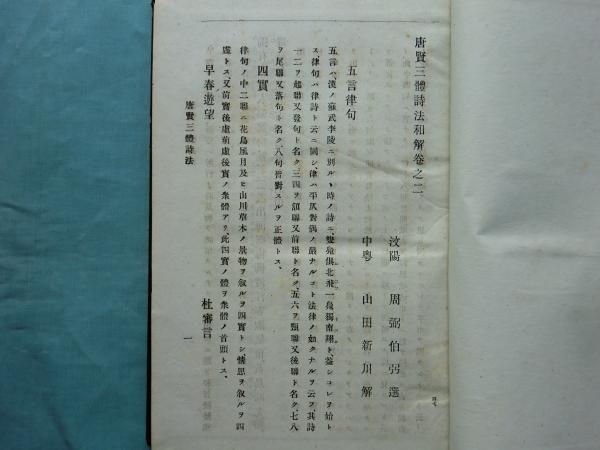 唐賢三體詩法和解卷之二
汶陽 周弼伯弜選
中粤 山田新川解
五言律句
五言ハ、漢ノ蘇武李陵ニ別ルヽ時ノ詩ニ、雙鳧俱北飛一鳧獨南翔ト、蓋シコレヲ始ト
ス、律句ハ律詩ト云ニ同シ、律ハ平仄對偶ノ嚴ナルコト法律ノ如クナルヲ云フ、其詩
一二ヲ起聯又發句ト名ク、三四ヲ頷聯又前聯ト名ク、五六ヲ頸聯又後聯ト名ク、七八
ヲ尾聯又落句ト名ク、八句皆對スルヲ正體トス、
四實
律句ノ中二聯ニ花鳥風月及ヒ山川草木ノ景物ヲ叙ルヲ四實トシ、情思ヲ叙ルヲ四
虛トス、又前實後虛前虛後實ノ衆體アリ、此四實ノ體ヲ衆體ノ首頭トス、
早春遊望 杜審言
唐賢三體詩法
一